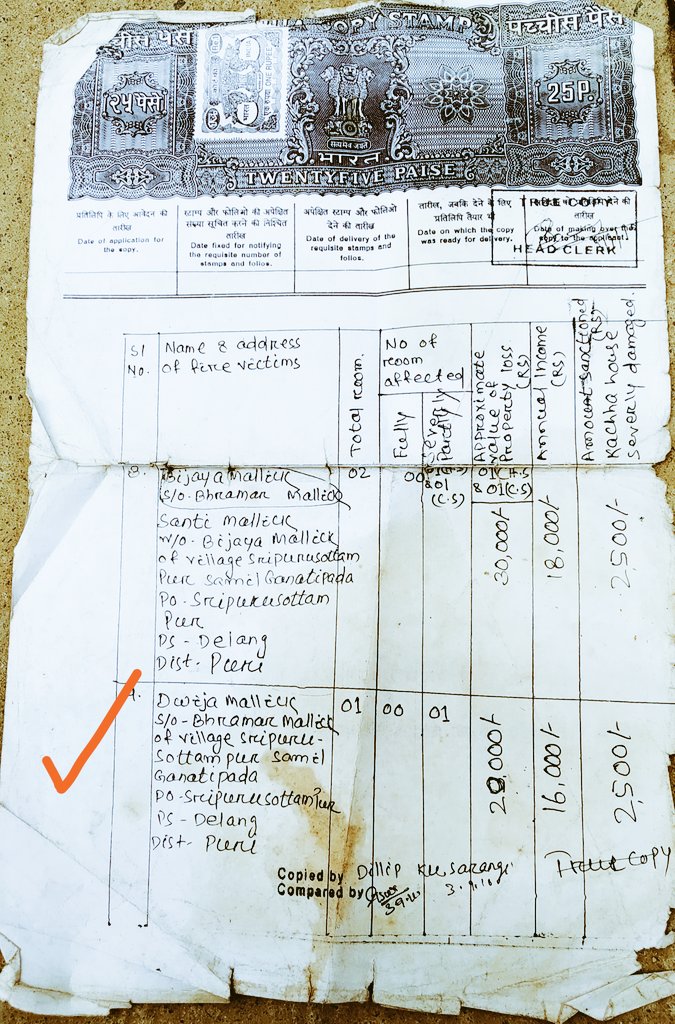 COPY STAMP
पच्चीस पैसे
पच्चीस पैसे
२५ पैसे
25P.
सत्यमेव जयते
भारत
TWENTYFIVE PAISE
प्रतिलिपि के लिए आवेदन की तारीख
Date of application for the copy.
स्टाम्प और फोलिओ की अपेक्षित संख्या सूचित करने की निश्चित तारीख
Date fixed for notifying the requisite number of stamps and folios.
अपेक्षित स्टाम्प और फोलिओ देने की तारीख
Date of delivery of the requisite stamps and folios.
तारीख, जबकि देने के लिए प्रतिलिपि तैयार थी
Date on which the copy was ready for delivery.
तारीख
Date of making over the copy to the applicant.
TRUE COPY
HEAD CLERK
Sl No.
Name & address of fire victims
Total room.
No of room affected
Fully
Severly Partly
Approximate value of Property loss (RS)
Annual Income (RS)
Amount sanctioned (RS)
Kachha house severly damaged.
8. Bijaya Mallick 02 00 01(H.S) 01(H.S)
S/o. Bhramar Mallick &01 (C.S) & 01(C.S)
Santi Mallick 30,000/- 18,000/- 2,500/-
W/o. Bijaya Mallick
of village Sripurusottam
Pur Samil Ganatipada
PO-Sripurusottam
Pur
PS - Delang
Dist- Puri
9. Dwija Mallick 01 00 01 20,000/- 16,000/- 2,500/-
S/o-Bhramar Mallick
of village Sripuru-
Sottampur Samil
Ganatipada
PO-Sripurusottampur
PS - Delang
Dist- Puri
Copied by Dillip Ku Sarangi
Compared by
True Copy